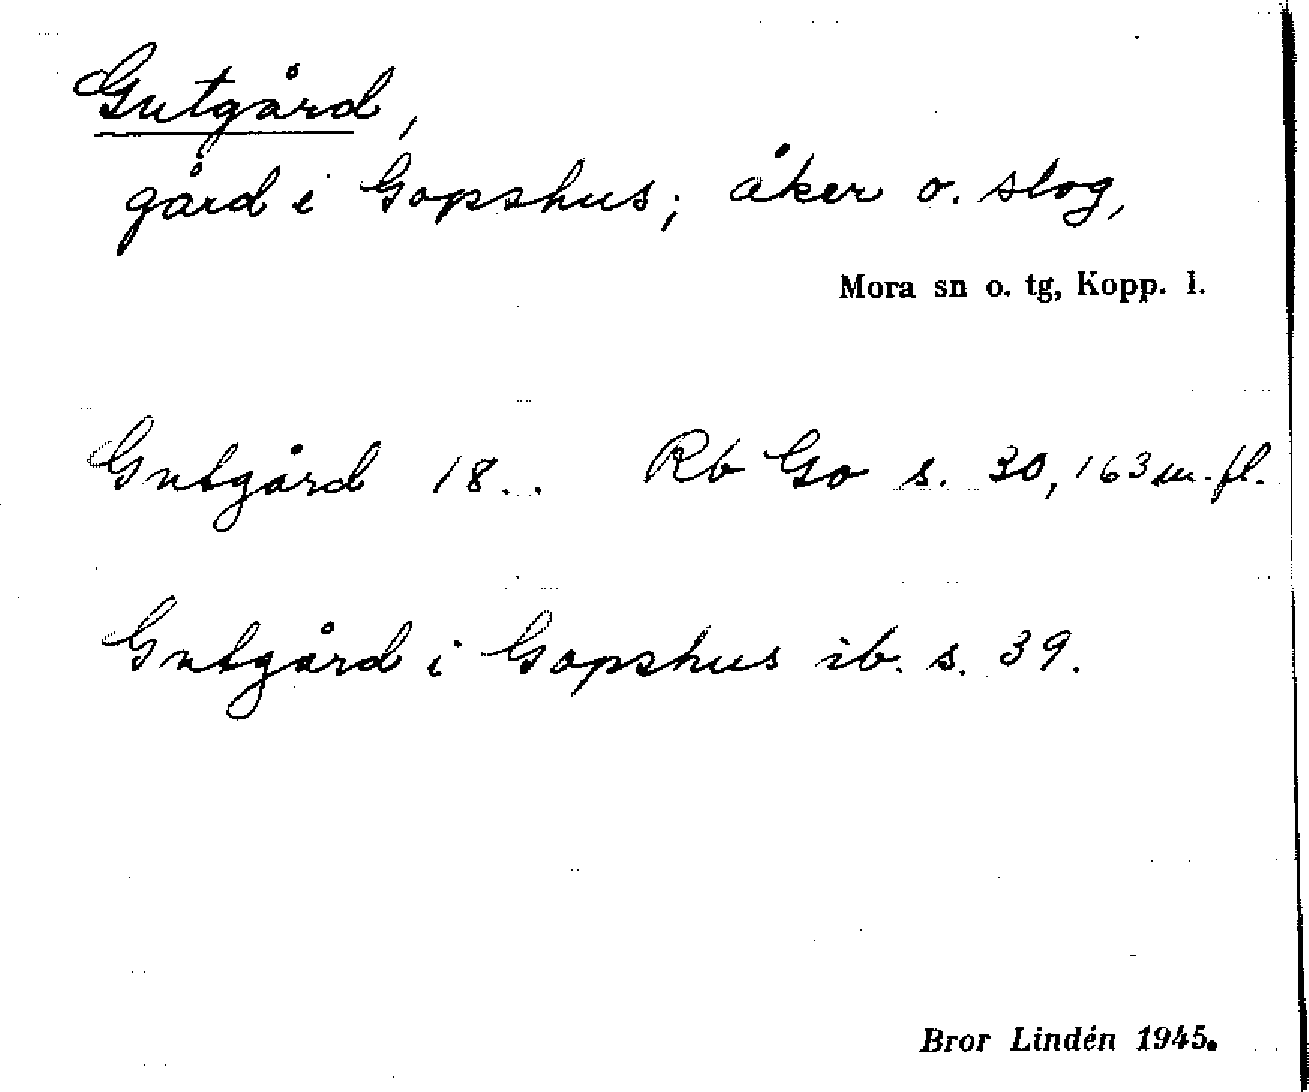 Gutgård,
gård i Gopshus; åker o. slog,
Mora sn o. tg, Kopp. l.
Gutgård 18.. Rb Go s. 30, 163 m. fl.
Gutgård i Gopshus ib. s. 39.
Bror Lindén 1945.